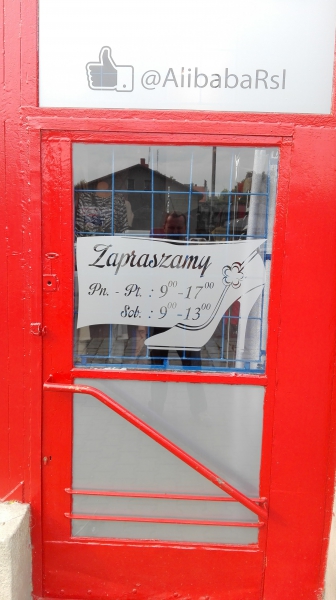 @AlibabaRsl
Zapraszamy
Pn. - Pt. : 9⁰⁰-17⁰⁰
Sob. : 9⁰⁰-13⁰⁰